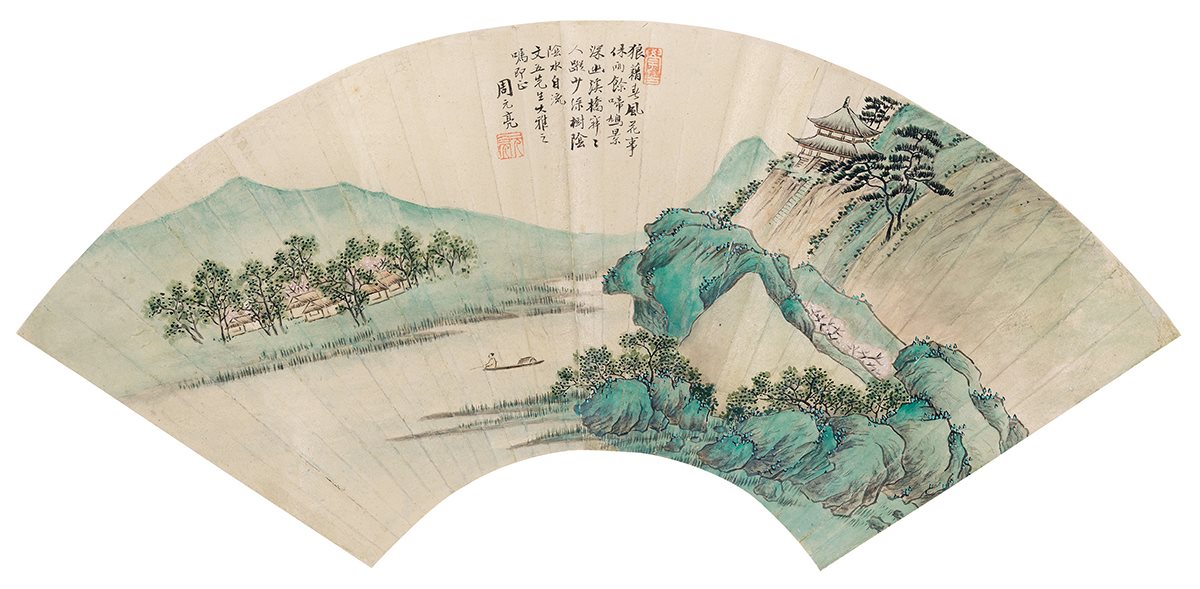 狼藉春風花事
休雨餘啼鳩景
深幽溪橋寂〻
人蹤少綠樹陰
陰水自流
文五先生大雅之
囑即正
周元亮